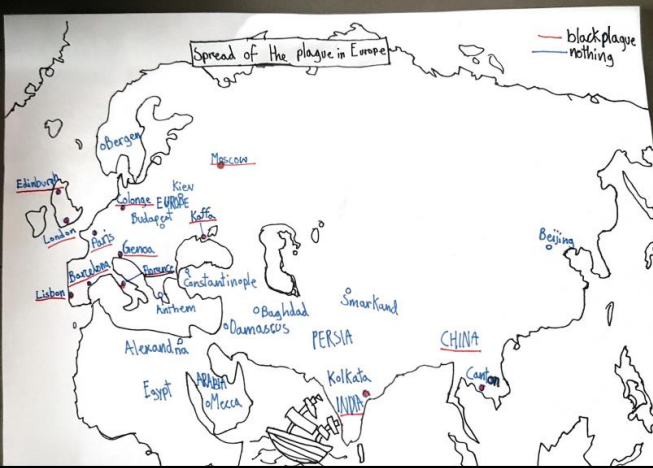 Spread of the plague in Europe
black plague
nothing
Bergen
Moscow
Edinburgh
Kiev
Colonge
EUROPE
Budapest
Kaffa
London
Paris
Genoa
Beijing
Barcelona
Florence
Constantinople
Lisbon
Anthem
Baghdad
Smarkand
Damascus
PERSIA
CHINA
Alexandria
Kolkata
Canton
Egypt
ARABIA
Mecca
INDIA